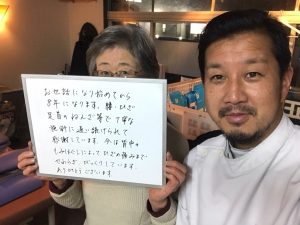 お世話になり始めてから
8年になります。腰・ひざ
足首のねんざ等で丁寧な
施術に通い続けられて
感謝しています。今は背中の
もみほぐしによってひざの痛みまで
やわらぎ、びっくりしています。
ありがとうございます